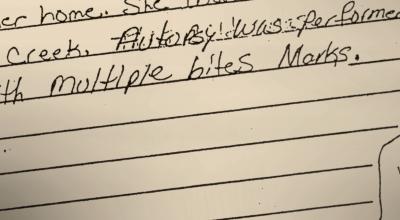 er home. She
Creek. Autopsy was performed
th multiple bites Marks.